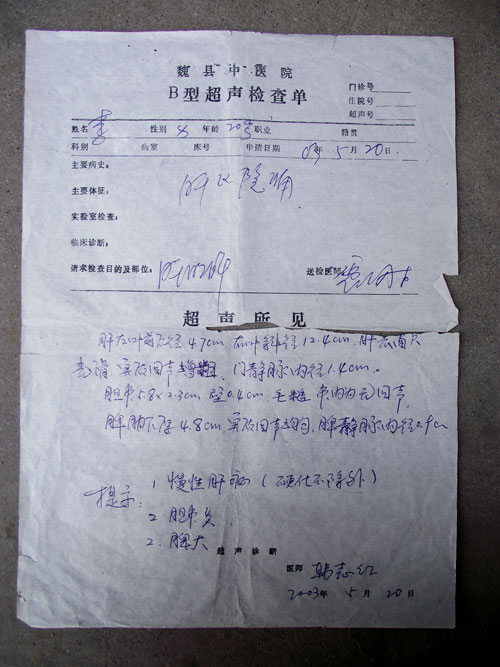 魏县中医院
B型超声检查单
门诊号
住院号
超声号
姓名 李 性别 女 年龄 20岁 职业 籍贯
科别 病室 床号 申请日期 03年 5月 20日
主要病史:
主要体征: 肝区隐痛
实验室检查:
临床诊断:
请求检查目的及部位: 送检医师
超声所见
肝左叶前后径4.7cm 右叶斜径12.4cm 肝表面欠
光滑 实质回声增粗、门静脉内径1.4cm.
胆囊5.8×2.3cm 壁0.4cm 毛糙 囊内为无回声
脾肋下厚4.8cm 实质回声均匀, 脾静脉内径0.9cm
提示: 1 慢性肝病(硬化不除外)
2 胆囊炎
2. 脾大
超声诊断
医师 韩志红
2003年 5月 20日